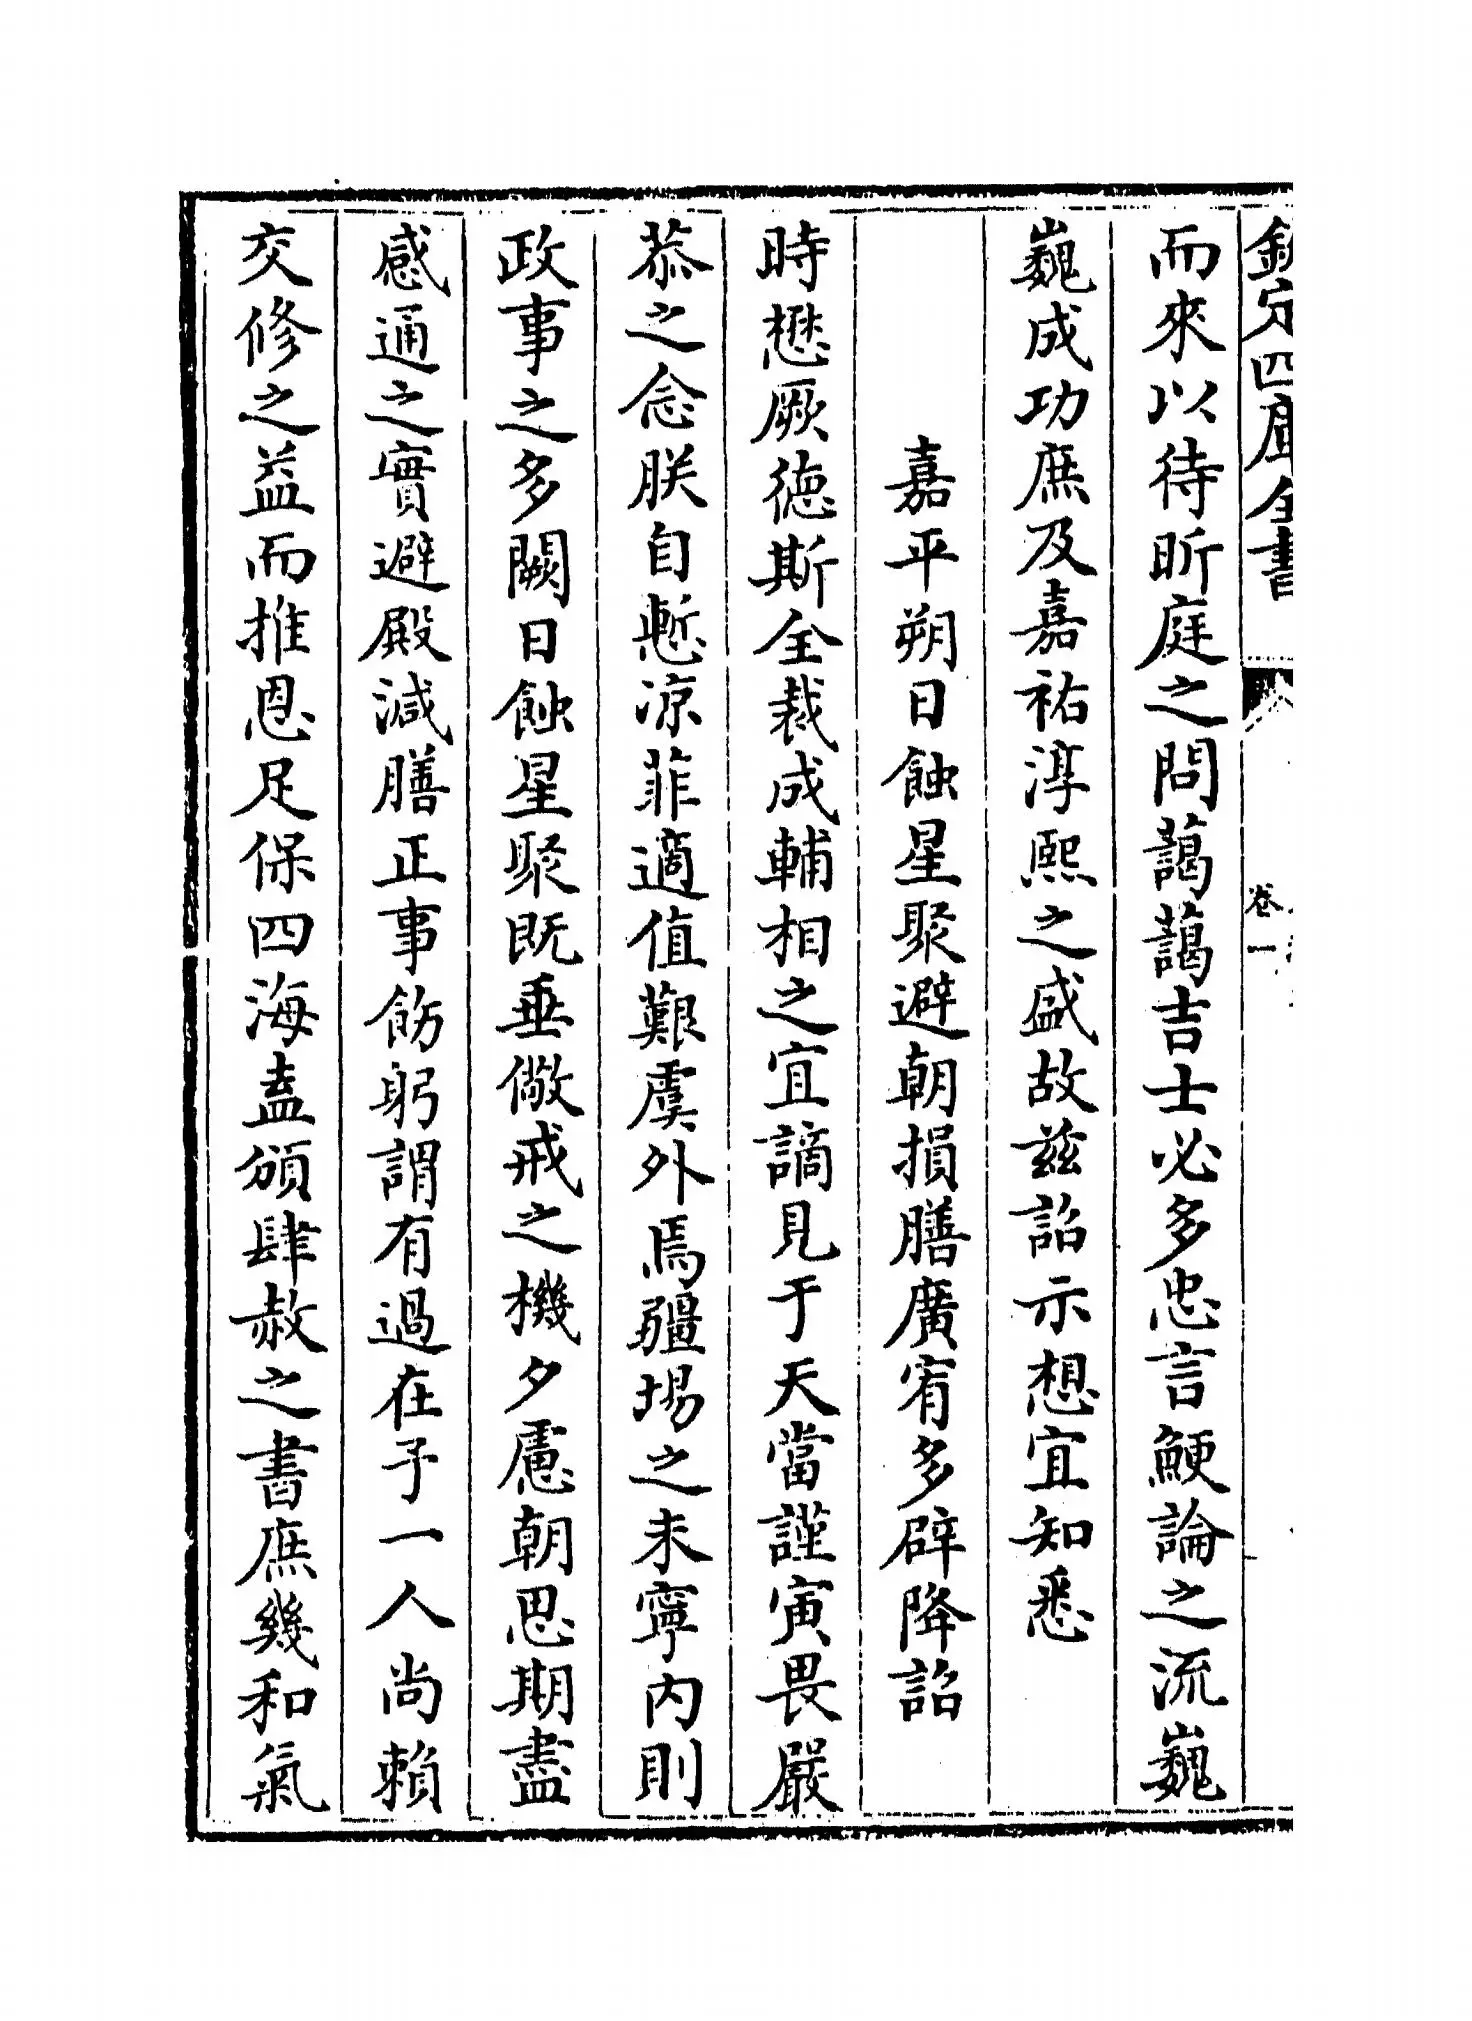 欽定四庫全書
卷一
而來以待昕庭之問藹藹吉士必多忠言鯁論之流巍
巍成功庶及嘉祐淳熙之盛故兹詔示想宜知悉
嘉平朔日蝕星聚避朝損膳廣宥多辟降詔
時懋厥德斯全裁成輔相之宜謫見于天當謹寅畏嚴
恭之念朕自慙涼菲適值艱虞外焉疆埸之未寧内則
政事之多闕日蝕星聚既垂儆戒之機夕慮朝思期盡
感通之實避殿減膳正事飭躬謂有過在予一人尚賴
交修之益而推恩足保四海盍頒肆赦之書庶幾和氣